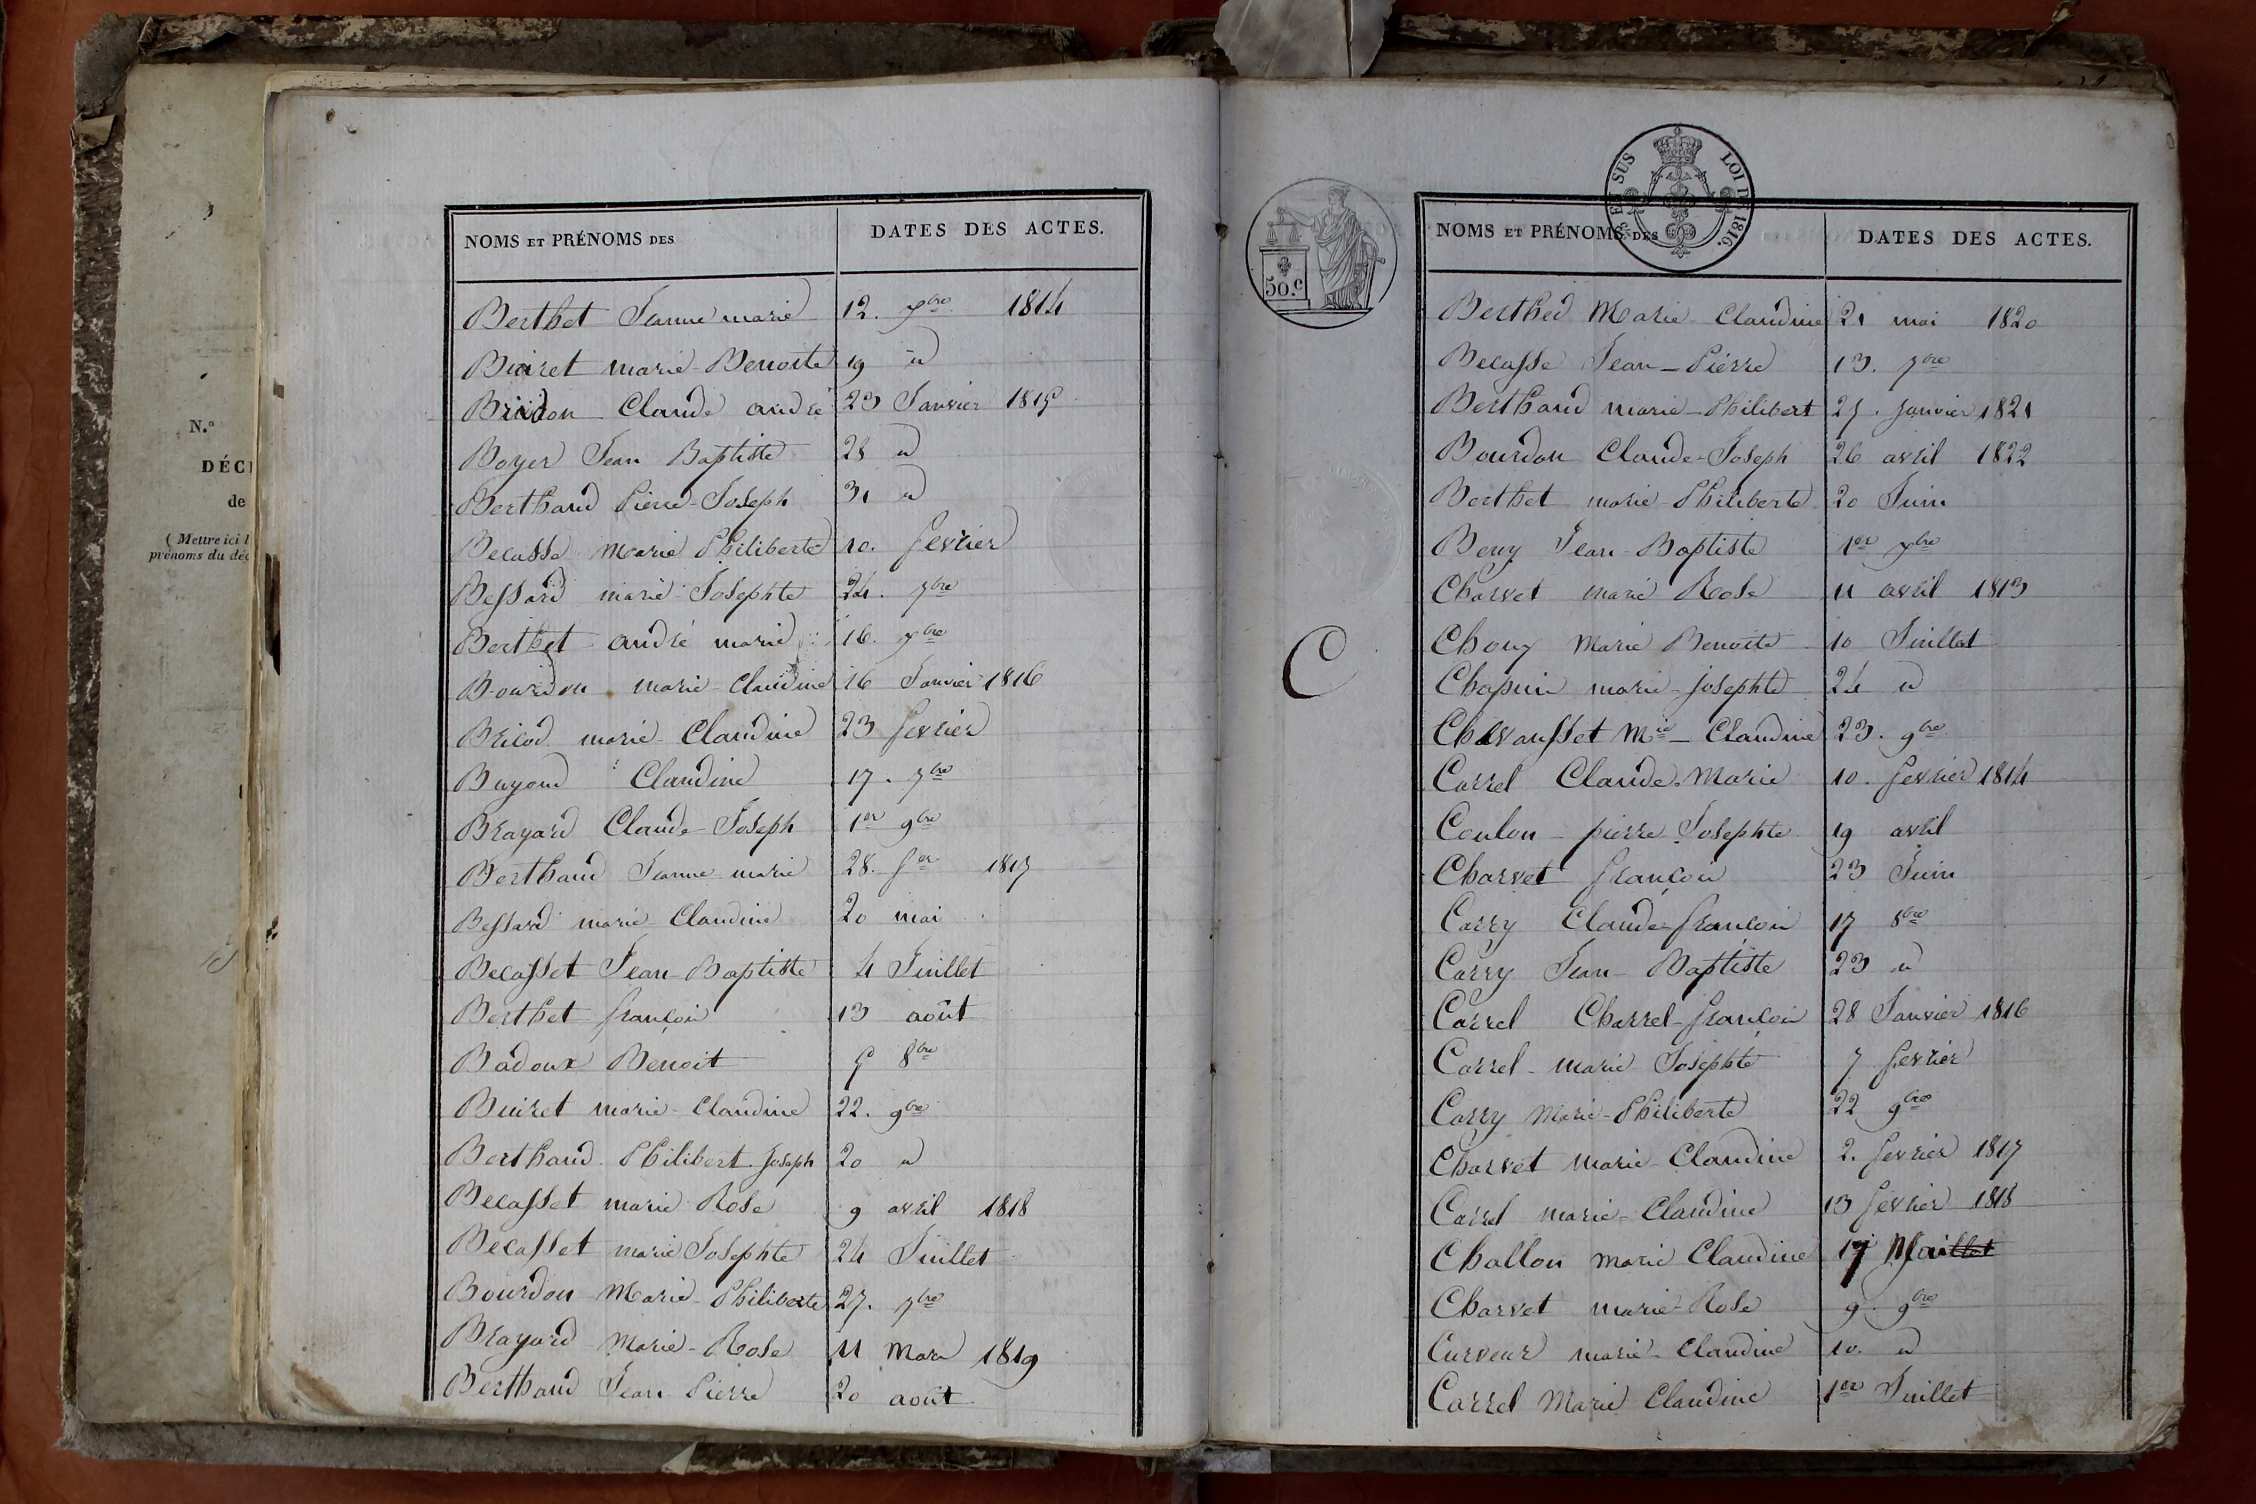 N.º
DÉC
de
( Mettre ici l
prénoms du déc
NOMS ET PRÉNOMS DES DATES DES ACTES.
Berthet Jeanne marie 12. xbre 1814
Buiret marie Benoite 19 "
Bridon Claude andré 23 Janvier 1815
Boyer Jean Baptiste 28 "
Berthaud Pierre-Joseph 31 "
Becasse Marie Philiberte 10. fevrier
Bessard marie Josephte 24. 7bre
Berthet andré marie 16. xbre
Bourdon marie-Claudine 16 Janvier 1816
Bricod marie Claudine 23 fevrier
Buyoud Claudine 17. 7bre
Brayard Claude-Joseph 1er 9bre
Berthaud Jeanne marie 28. fer 1817
Bessard marie Claudine 20 mai
Becasset Jean Baptiste 4 Juillet
Berthet françois 13 août
Badoux Benoit 5 8bre
Buiret marie-Claudine 22. 9bre
Berthaud Philibert Joseph 20 "
Becasset marie Rose 9 avril 1818
Becasset marie Josephte 24 Juillet
Bourdon Marie-Philiberte 27. xbre
Brayard Marie-Rose 11 Mars 1819
Berthaud Jean Pierre 20 août
ET SUS LOI DE 1816.
50.c
NOMS ET PRÉNOMS DES DATES DES ACTES.
Berthed Marie Claudine 21 mai 1820
Becasse Jean-Pierre 13. 7bre
Berthaud marie-Philibert 25. janvier 1821
Bourdon Claude-Joseph 26 avril 1822
Berthet marie-Philiberte 20 Juin
Beny Jean-Baptiste 1er xbre
C
Charvet marie Rose 11 avril 1813
Chouy Marie Benoite 10 Juillet
Chapuis marie-josephte 24 "
Chavausset Mie-Claudine 23. 9bre
Carrel Claude-Marie 10. fevrier 1814
Coulon-pierre Josephte 19 avril
Charvet françois 23 Juin
Carry Claude-françois 17 8bre
Carry Jean-Baptiste 23 "
Carrel Charrel-françois 28 Janvier 1816
Carrel-marie Josephte 7 fevrier
Carry Marie-Philiberte 22 9bre
Charvet marie-Claudine 2. fevrier 1817
Carrel marie-Claudine 13 fevrier 1818
Challon marie Claudine 17 Maillet
Charvet marie-Rose 9. 9bre
Curveur marie-Claudine 10. "
Carrel Marie Claudine 1er Juillet